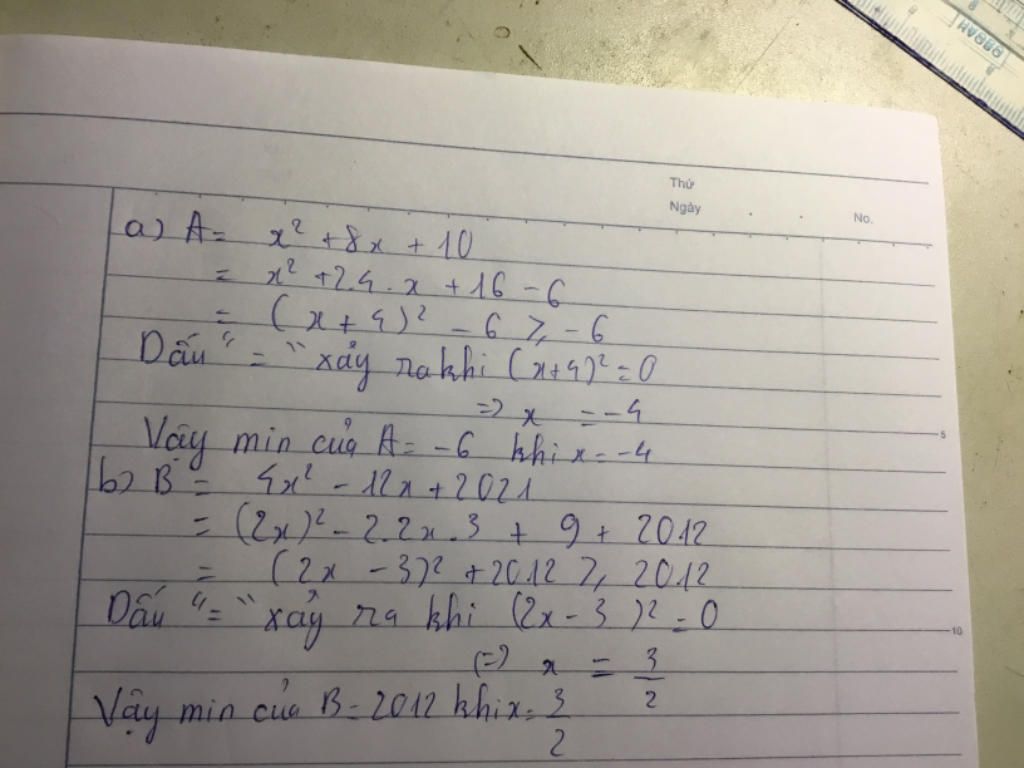 Thứ
Ngày . . No.
a) A = x² + 8x + 10
= x² + 2.4.x + 16 - 6
= (x + 4)² - 6 ⩾ -6
Dấu "=" xảy ra khi (x+4)² = 0
=> x = -4
Vậy min của A = -6 khi x = -4
5
b) B = 4x² - 12x + 2021
= (2x)² - 2.2x.3 + 9 + 2012
= (2x - 3)² + 2012 ⩾ 2012
Dấu "=" xảy ra khi (2x - 3)² = 0
10
(=) x = 3/2
Vậy min của B = 2012 khi x = 3/2